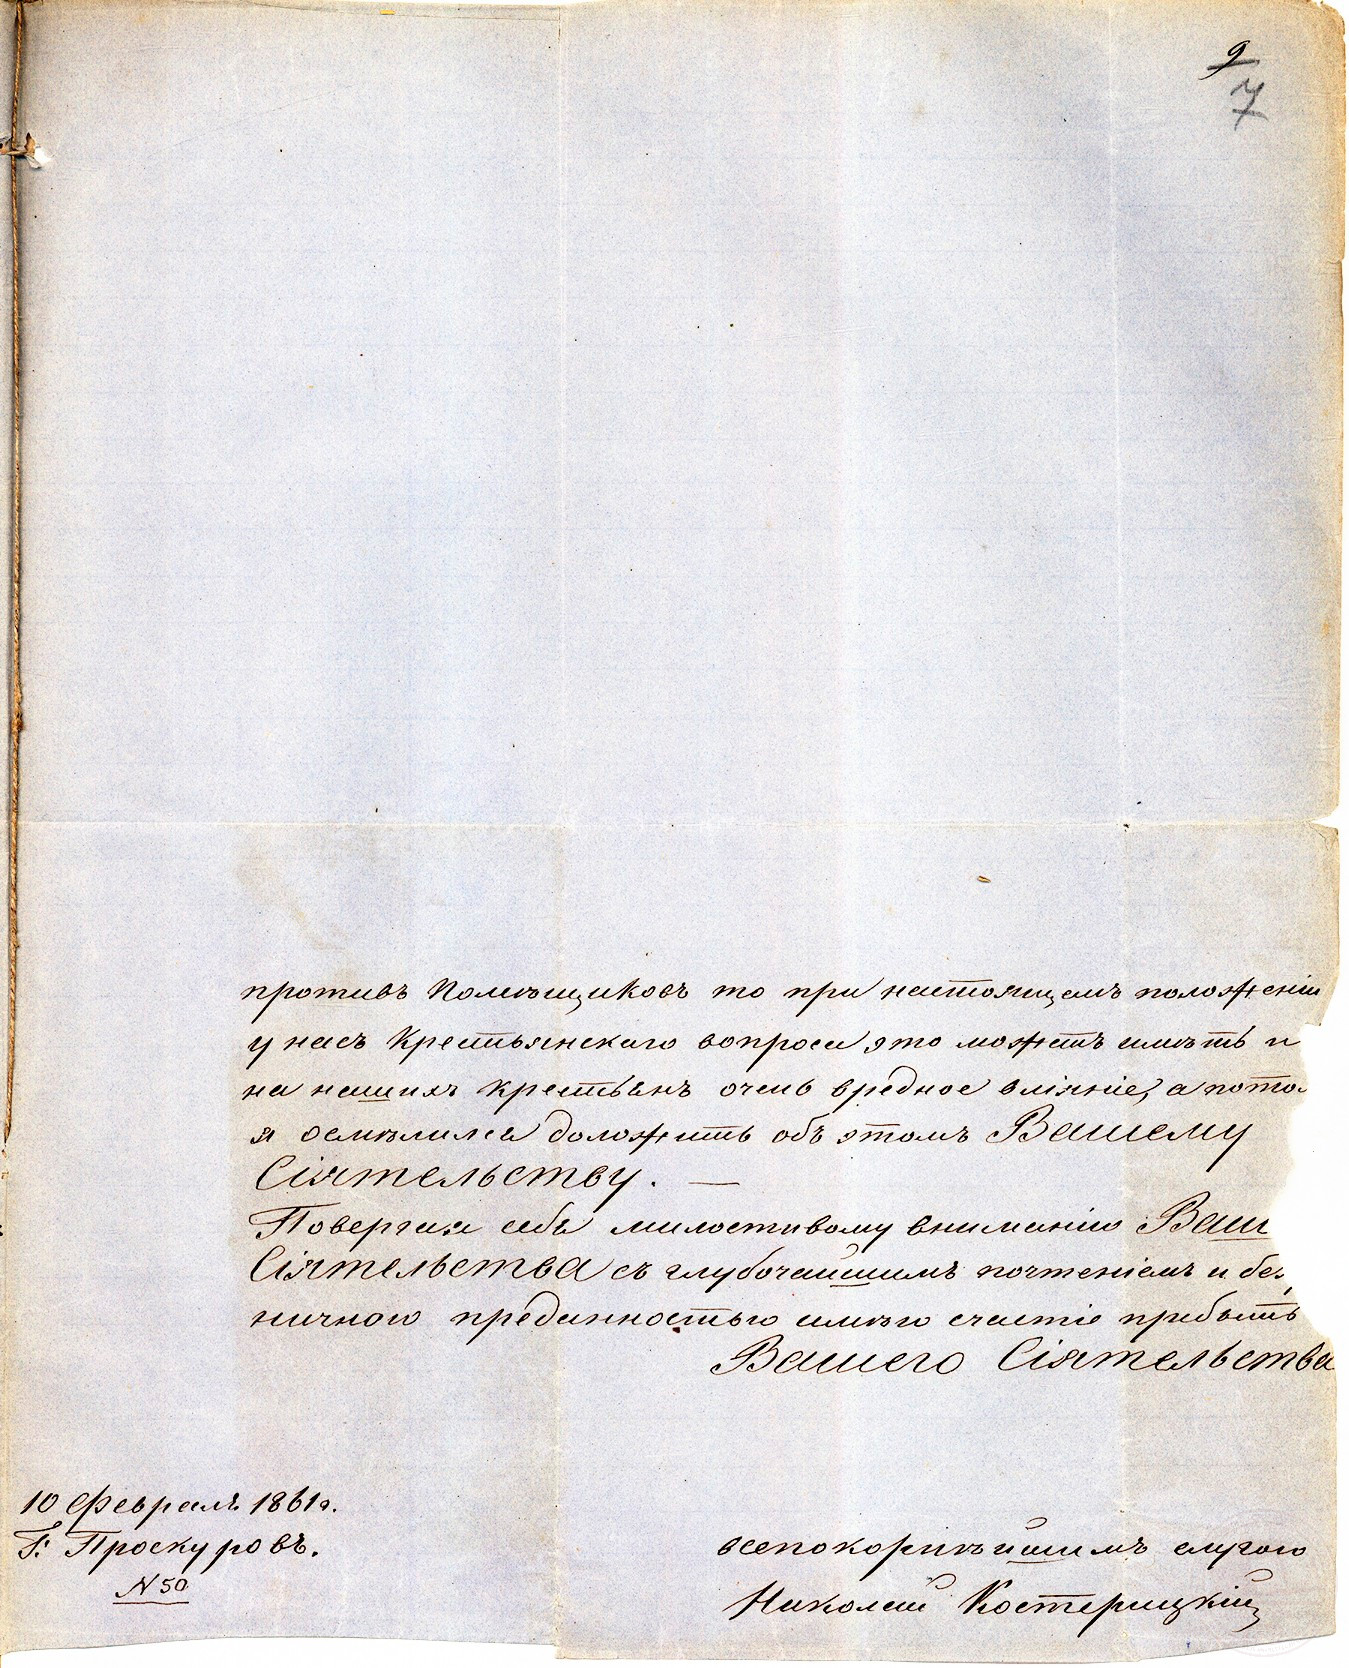 9
7
противъ Помѣщиковъ то при настоящемъ положеніи
у насъ Крестьянскаго вопроса, это можетъ имѣть и
на нашихъ крестьянъ очень вредное вліяніе, а пото
я осмѣлился доложить объ этомъ Вашему
Сіятельству. —
Повергая себя милостивому вниманію Ваш
Сіятельства съ глубочайшимъ почтеніемъ и без
ничною преданностью имѣю счастіе пребыть
Вашего Сіятельства
10 Февраля 1861 г.
Г: Проскуровъ.
N 50
всепокорнѣйшимъ слугою
Николай Костерицкій